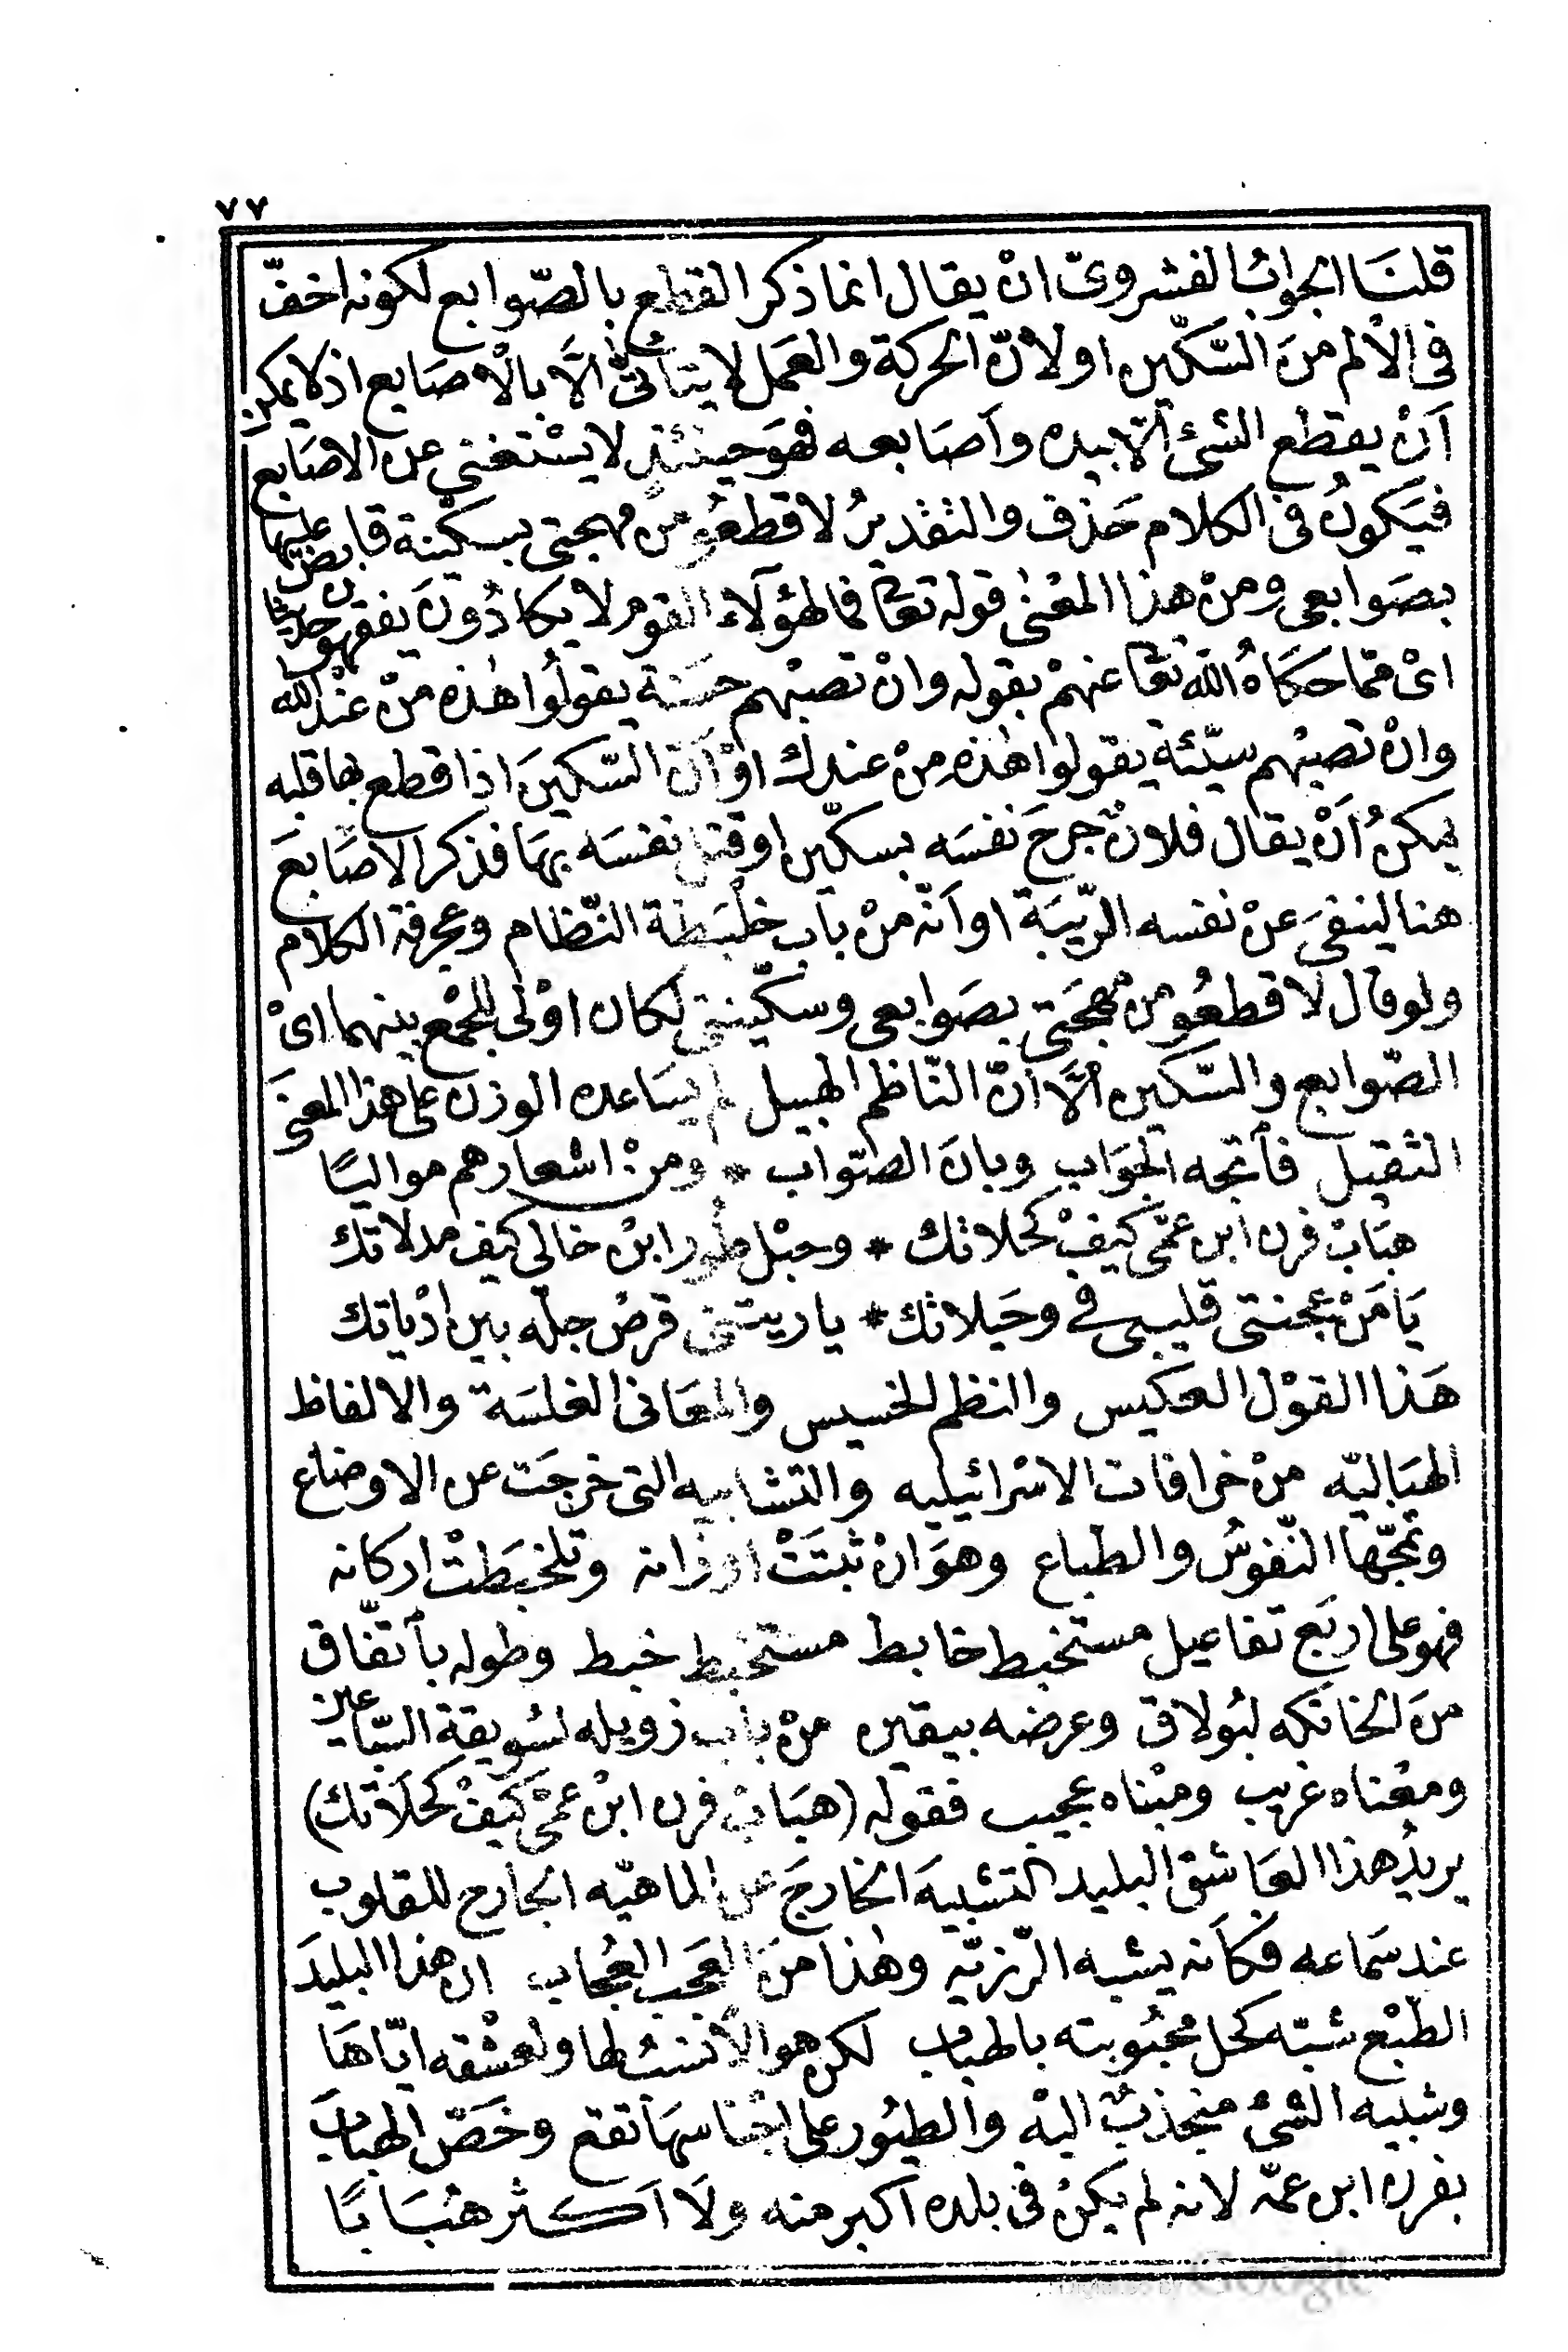 ٧٧
قلنَا الجوابُ الفشرویّ انْ يقال انما ذكر القطع بالصّوابع لكونه اخفّ
فی الالم منَ السّكّين او لانّ الحركة والعَمل لا يتأتّی الَّا بالاصَابع اذ لا يمكن
اَنْ يقطع الشئ الّا بيده وأصَابعه فهوَ حينئذٍ لا يسْتغنی عن الاصَابع
فيَكونُ فی الكلام حَذف والتقْديرُ لاقطعُو منْ مهجتی بسكّينة قابض عليها
بصَوابعی ومنْ هذا المعْنیٰ قوله تعالی فما لهؤلَاء القوم لا يكادُونَ يفقهون حديثا
ایْ ممّا حكَاهُ اللّه تعالی عنهمْ بقوله وانْ تصبْهم حسَنة يقولُوا هٰذه منْ عنْد اللّه
وانْ تصبْهم سيّئة يقولوا هٰذهِ مِنْ عندك اوْ اَنّ السّكينَ اذا قطع بها قلبه
يمكنُ اَنْ يقال فلانٌ جرحَ نفسَه بسكّين او قتل نفسَه بهَا فذكر الاصَابعَ
هنا لينفیَ عنْ نفسه الرّيبَة او انّه منْ باب خلْبَطة النّظام وعجرفة الكلام
ولو قال لاقطعُو منْ مهجَتی بصَوابعی وسكّينتی لكان اوْلی للجمْع بينهما ایْ
الصّوابع والسّكين الَّا انّ النّاظم الهبيل لم يسَاعده الوزن علی هذا المعنیَ
الثقيل فأتجه الجوَاب وبانَ الصّواب * ومنْ اشعارهم مواليًا
هبَابْ فرن ابن عمّی كيفْ كحلاتك * وحبْل طُور ابنْ خالی كيف مدلاتك
يَا مَنْ عجنتی قليبی فی وحَيلاتك * يا ريتنی قرصْ جلّه بين ادْياتك
هَذا القوْل العكيس والنظم الخسيس والمعَانی الفلسَة والالفاظ
الهبَاليّه منْ خرافات الاسْرائيليه والتشابيه التی خرجَت عن الاوضاع
وتمجّها النّفوسُ والطباع وهوَ انْ ثبتَتْ اوزانه وتلخبَطتْ اركانه
فهو علی اربَع تفاعيل مستخبط خابط مستخبط خبط وطوله بأتفّاق
منَ الخانكه لبُولاق وعرضه بيقين منْ باب زويله لسُويقة السّباعين
ومعْناه غريب ومبْناه عجيب فقوله (هبَابْ فرن ابْن عمّیْ كيَفْ كحْلَاتك)
يريدُ هذا العَاشق البليد التشبيهَ الخارجَ عن الماهيّه الجارح للقلوب
عند سَماعه فكَأنه يشبه الرّزيّه وهٰذا منَ العَجب العُجاب ان هذا البليدَ
الطّبْع شبّه كحل محْبُوبته بالهبَاب لكن هو الأنسَبُ لها ولعشْقه ايّاهَا
وشبيه الشّئ منجذبٌ اليْه والطيُور علی اجْناسهَا تقع وخَصّ الهبابَ
بفرن ابن عمّه لانه لم يكنْ فی بلده اكبر منه ولَا اَكثر هبَابًا